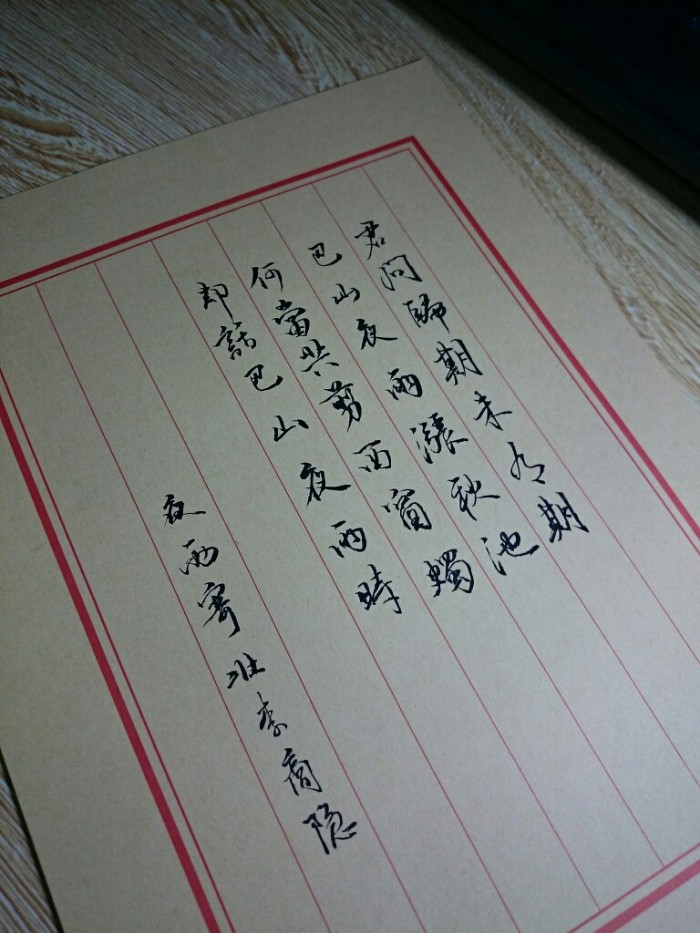 君问歸期未有期
巴山夜雨漲秋池
何當共剪西窗蠋
却話巴山夜雨時
夜雨寄北李商隐